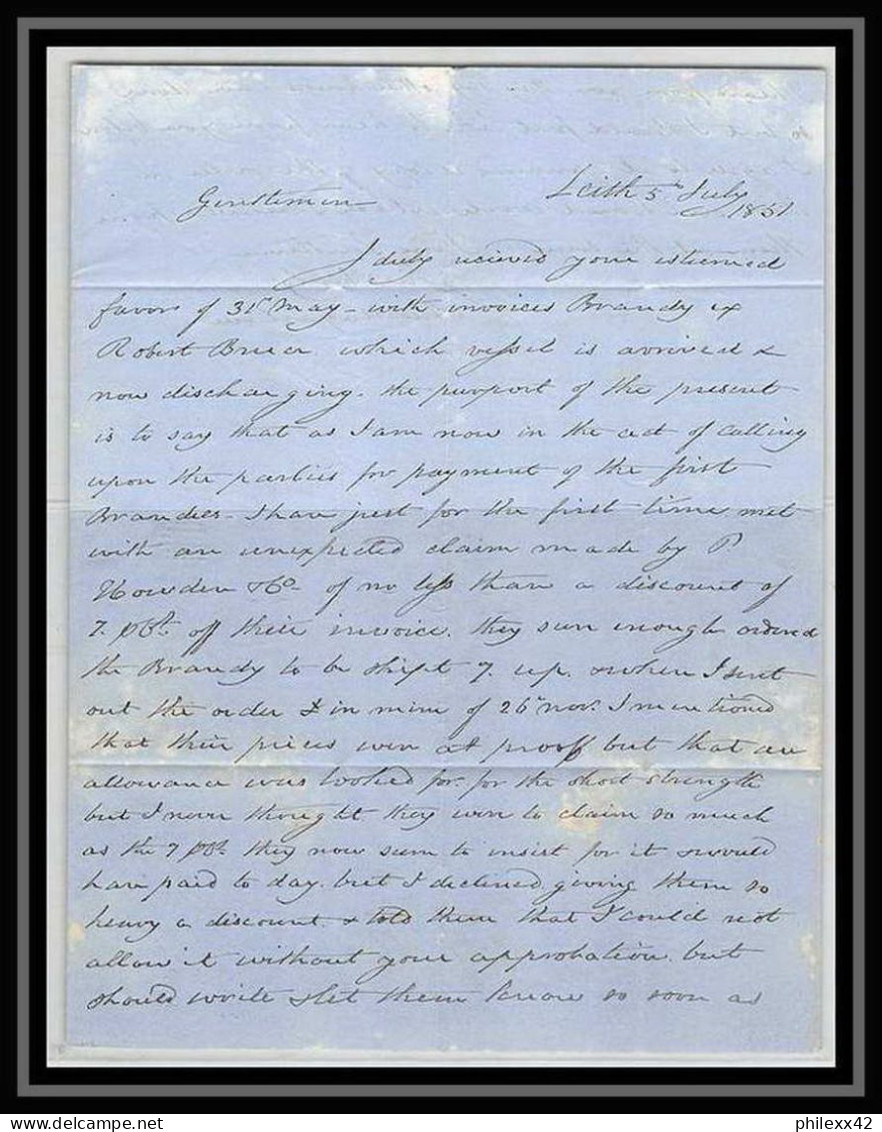 Leith 5th July
Gentlemen 1851
I duly recieved your esteemed
favors of 31st May - with invoices Brandy ex
Robert Bruce which vessel is arrived &
now discharging. the purport of the present
is to say that as I am now in the act of calling
upon the parties for payment of the first
Brandies - I have just for the first time met
with an unexpected claim made by P
Howden & Co. of no less than a discount of
7. pCt. off their invoice. they sure enough ordered
the Brandy to be shipt 7. up. & when I sent
out the order & in mine of 26th Novr. I mentioned
that their prices were at proof but that an
allowance was looked for. for the short strength
but I never thought they were to claim so much
as the 7 pCt. they now seem to insist for it & would
have paid to day. but I declined giving them so
heavy a discount. & told them that I could not
allow it without your approbation. but
should write & let them know so soon as
delcampe.net
philexx42